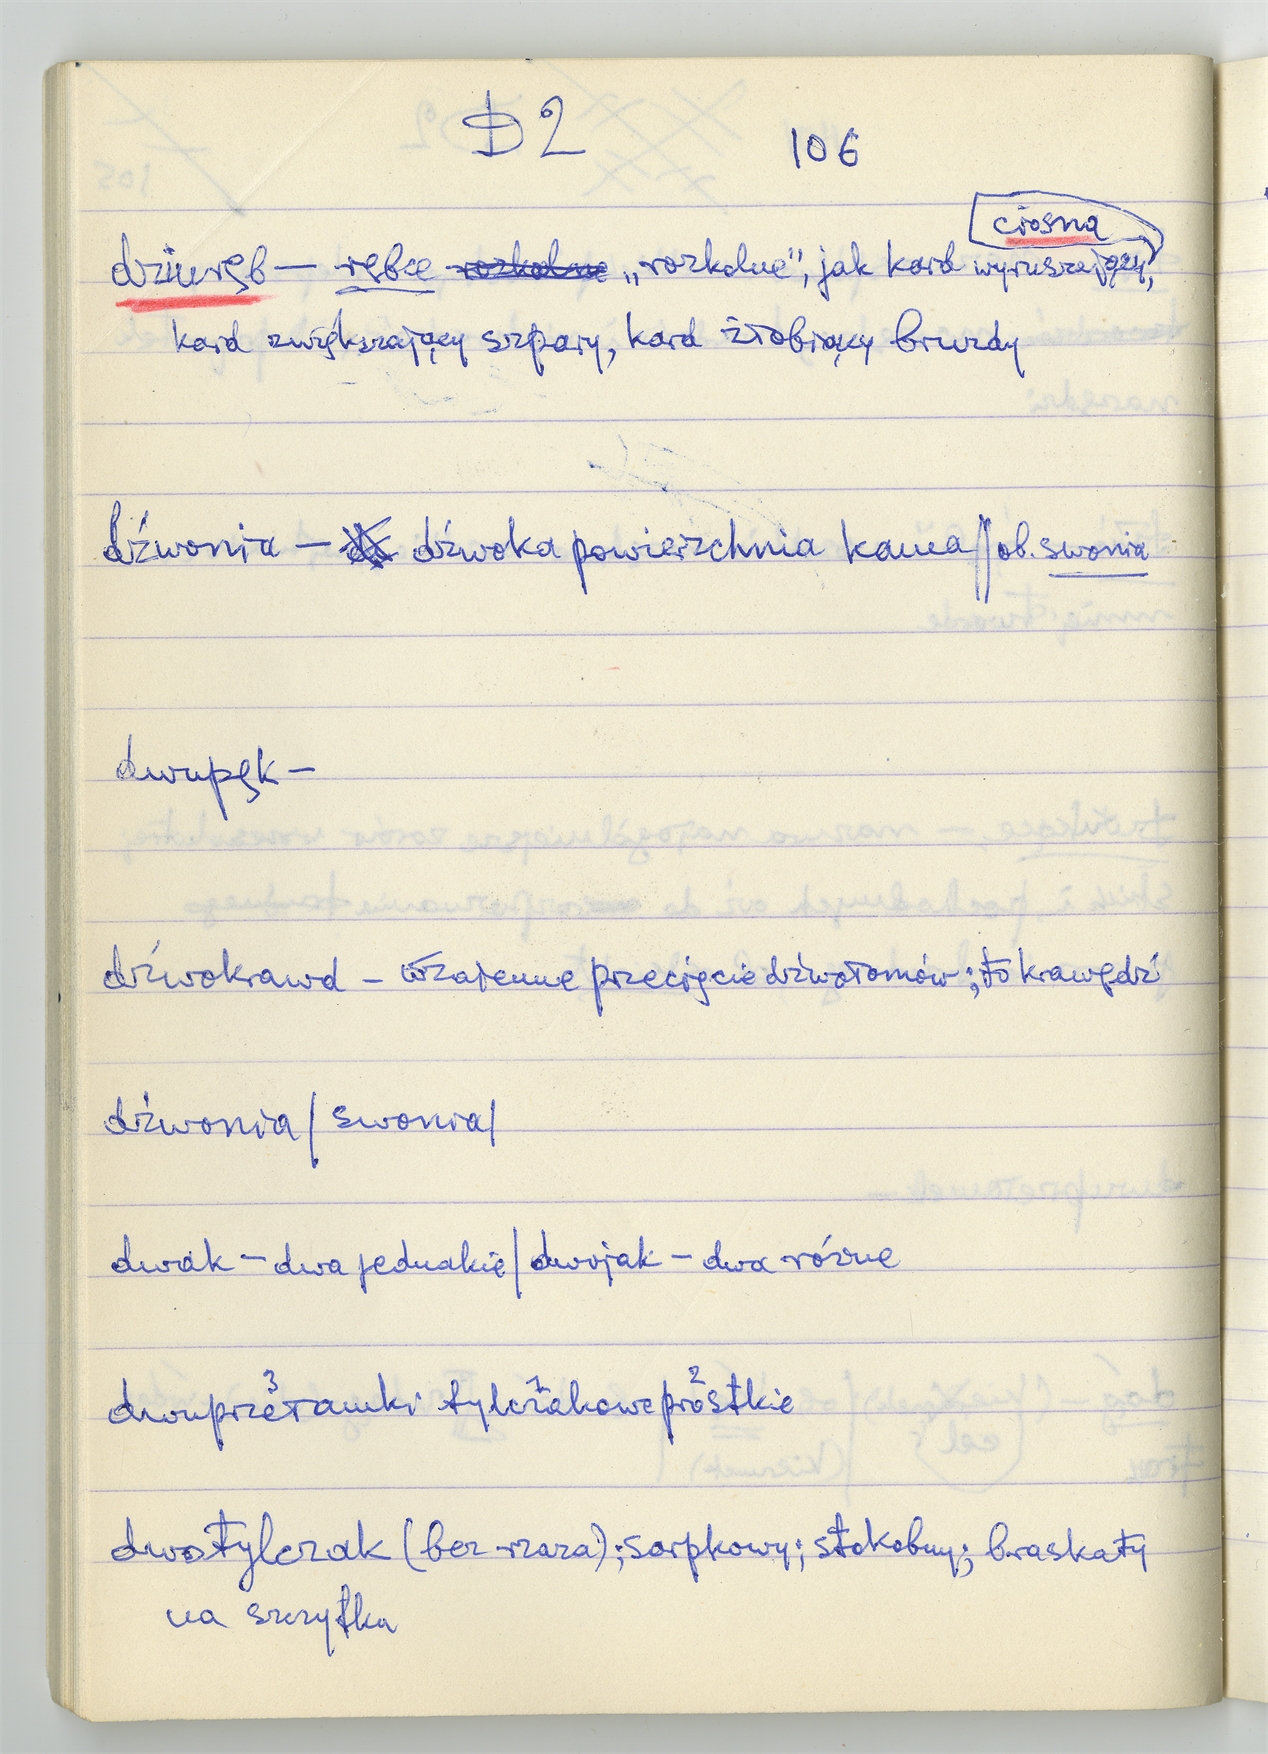 D2
106
ciosna
dziuręb — rębce rozkolne „rozkolne”, jak kard wyruszający,
kard zwiększający szpary, kard żłobiący bruzdy
dźwonia — dźwoka powierzchnia kamea // ob. swonia
dwupęk —
dźwokrawd — wzajemne przecięcie dźwołomów; to krawędź
dźwonia / swonia /
dwak — dwa jednakie / dwojak — dwa różne
3 1 2
dwuprzetamki tylczakowe próstkie
dwostylczak (bez raza); sarpkowy; stokobny; braskaty
na szczytka